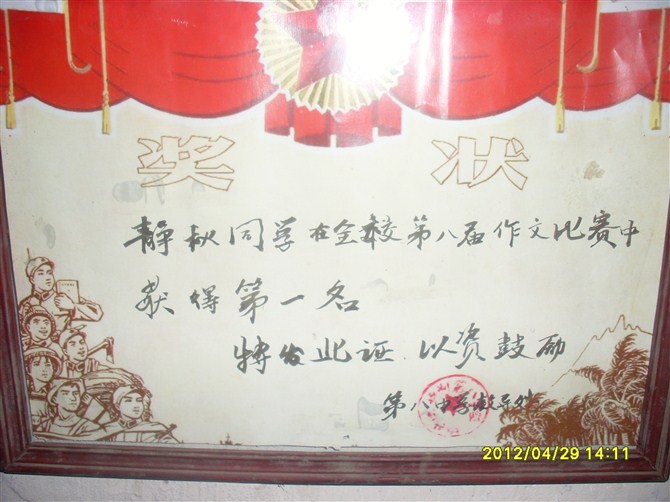 奖状
静秋同学在全校第八届作文比赛中
获得第一名
特发此证 以资鼓励
第八中学教导处
2012/04/29 14:11